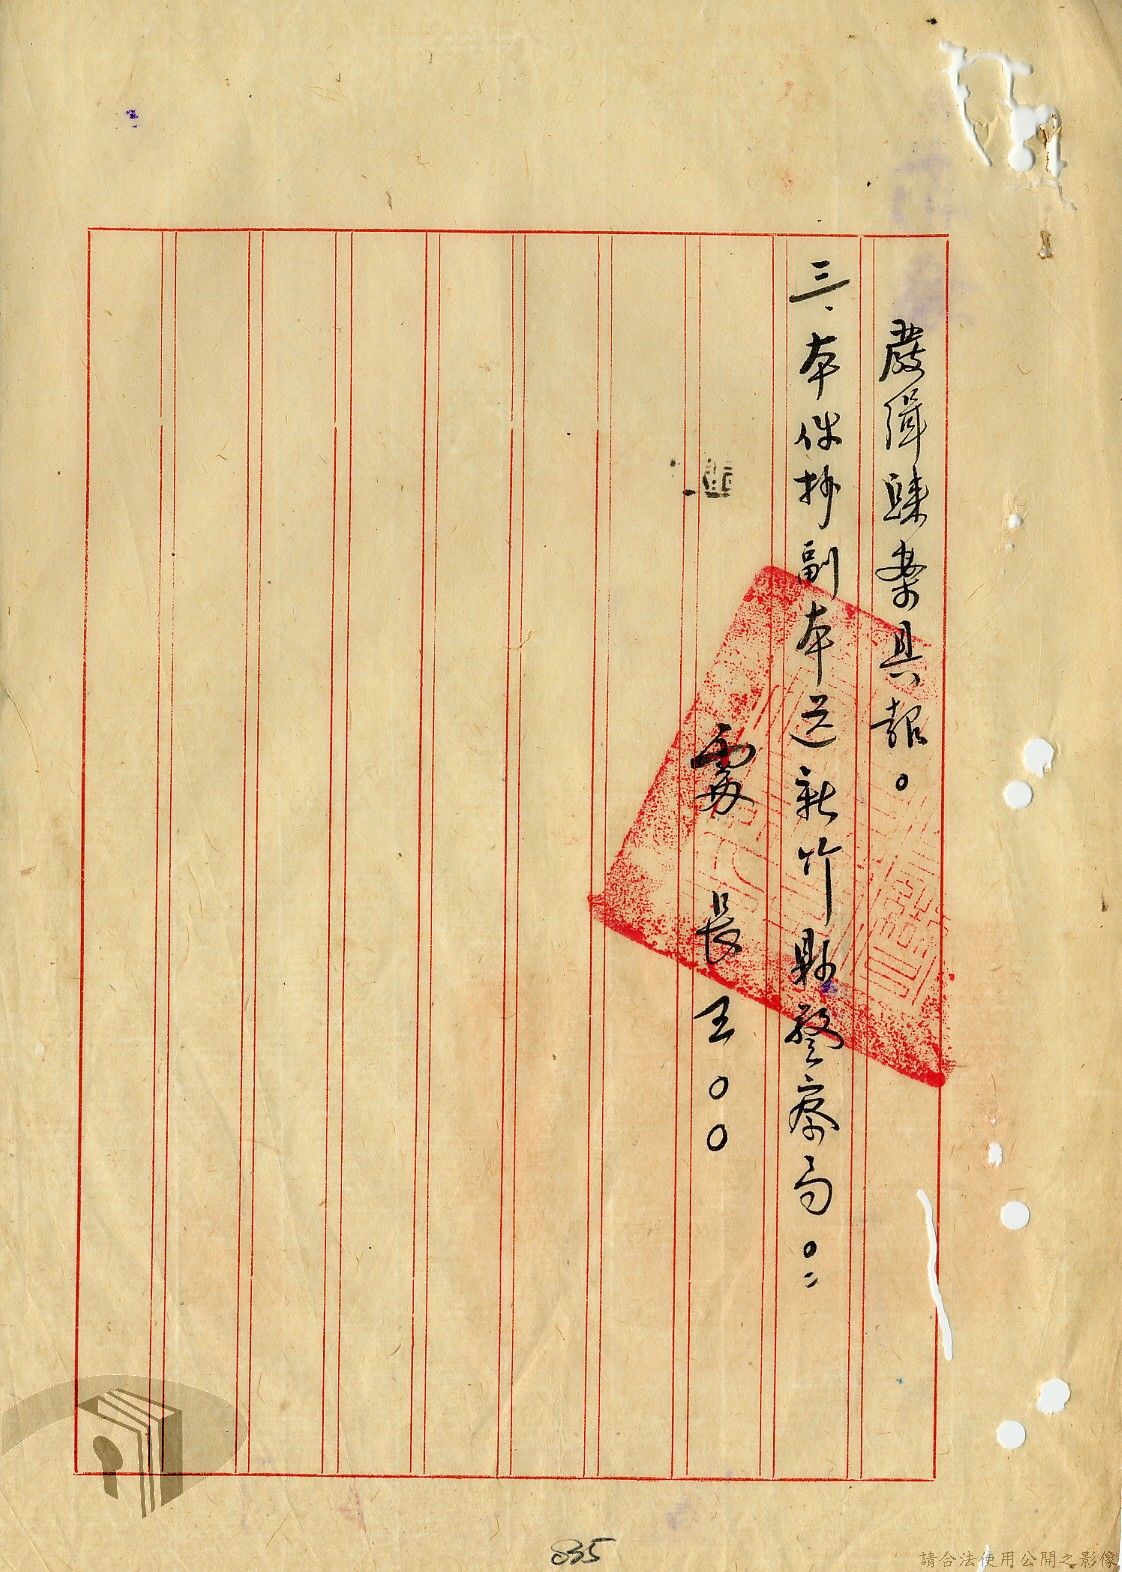 嚴緝歸案具報。
三、本件抄副本送新竹縣警察局。
處長王〇〇
835
請合法使用公開之影像